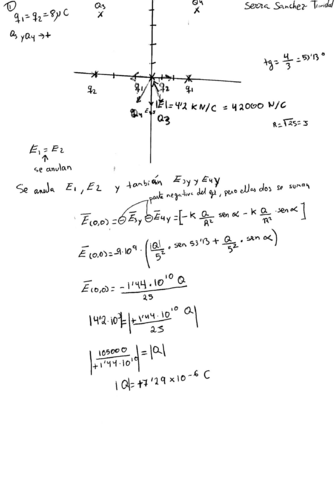 Serra Sanchez
q₁ = q₂ = 8μC
Q₃ y Q₄ → +
Q₃
Q₄
tg = 4/3 = 53'13°
q₂
q₁
q₂
q₁
|E| = 42 KN/C = 42000 N/C
Q₃
R = √25 = 5
E₁ = E₂
se anulan
Se anula E₁, E₂ y también E₃y y E₄y
parte negativa del eje, pero ellas dos se suman
E(0,0) = ⊖E₃y ⊖E₄y = [-K Q/R² sen α - K Q/R² sen α]
E(0,0) = -9·10⁹ · (|Q|/5² · sen 53'13 + Q/5² · sen α)
E(0,0) = -1'44·10¹⁰ Q / 25
|42·10³| = |+1'44·10¹⁰/25 Q|
|105000/+1'44·10¹⁰| = |Q|
|Q| = +7'29 × 10⁻⁶ C